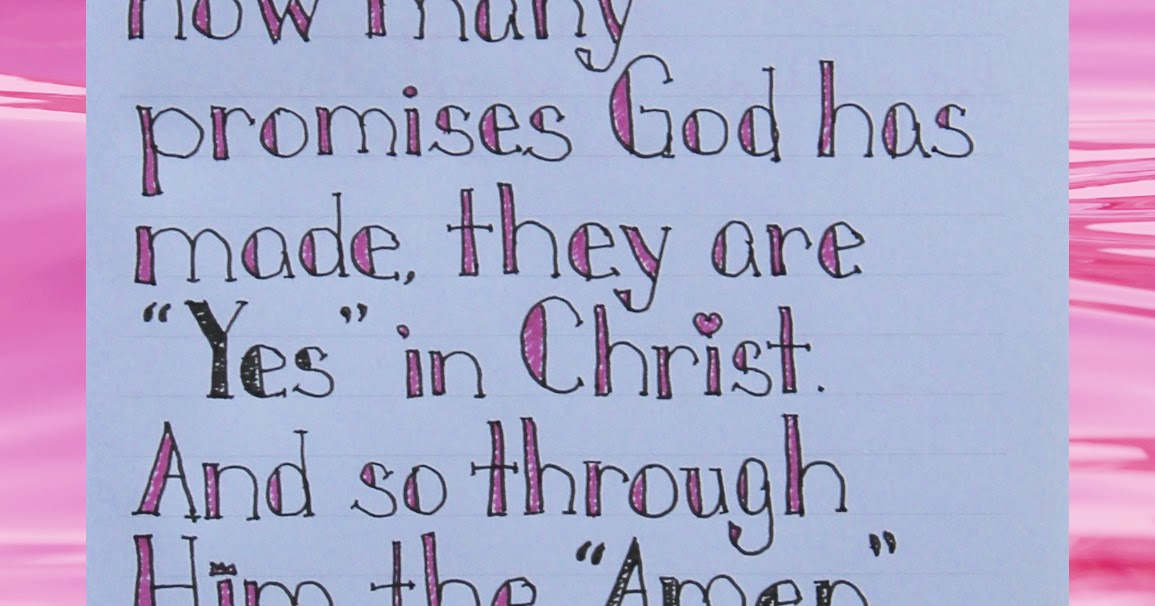 how many
promises God has
made, they are
“Yes” in Christ.
And so through
Him the “Amen”